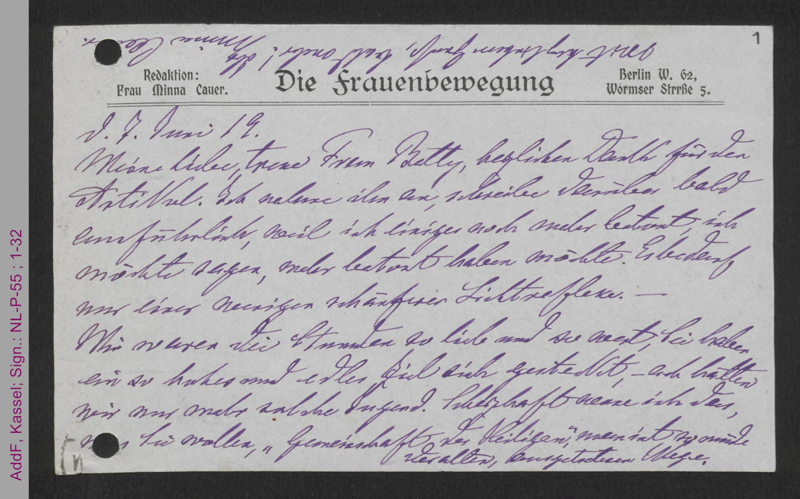 1
Redaktion:
Frau Minna Cauer.
Die Frauenbewegung
Berlin W. 62,
Wormser Strrße 5.
d. 7. Juni 19.
Meine liebe, treue Frau Betty, herzlichen Dank für den
Artikel. Ich nehme ihn an, schreibe darüber bald
ausführlich, weil ich einiges noch mehr betont, ich
möchte sagen, mehr betont haben möchte. Es bedarf
nur einer wenigen schärferen Lichtreflexe. —
Mir waren die Stunden so lieb und so wert, Sie haben
ein so hohes und edles Ziel sich gesteckt, — ach hätten
wir nur mehr solche Jugend. Scherzhaft nenne ich das,
was Sie wollen, „Gemeinschaft der Heiligen", man ist so müde
der alten, ausgetretenen Wege.
Minna Cauer.
AddF, Kassel; Sign.: NL-P-55 ; 1-32